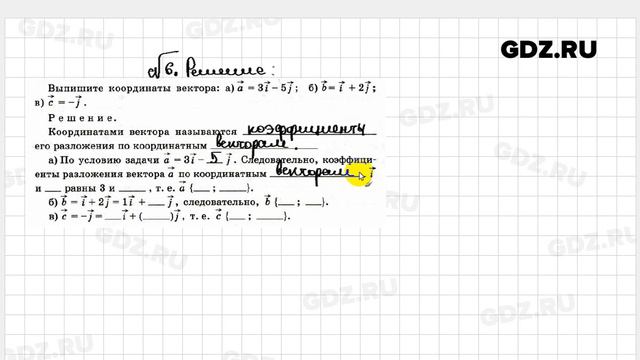 GDZ.RU
№6. Решение:
Выпишите координаты вектора: а) a⃗ = 3i⃗ – 5j⃗; б) b⃗ = i⃗ + 2j⃗;
в) c⃗ = –j⃗.
Решение.
Координатами вектора называются коэффициенты
его разложения по координатным векторам.
а) По условию задачи a⃗ = 3i⃗ – 5 j⃗. Следовательно, коэффици-
енты разложения вектора a⃗ по координатным векторам i⃗
и ___ равны 3 и ____, т. е. a⃗ {___; ____}.
б) b⃗ = i⃗ + 2j⃗ = 1i⃗ + ___ j⃗, следовательно, b⃗ {___; ___}.
в) c⃗ = –j⃗ = ___ i⃗ + (____)j⃗, т. е. c⃗ {___; ____}.